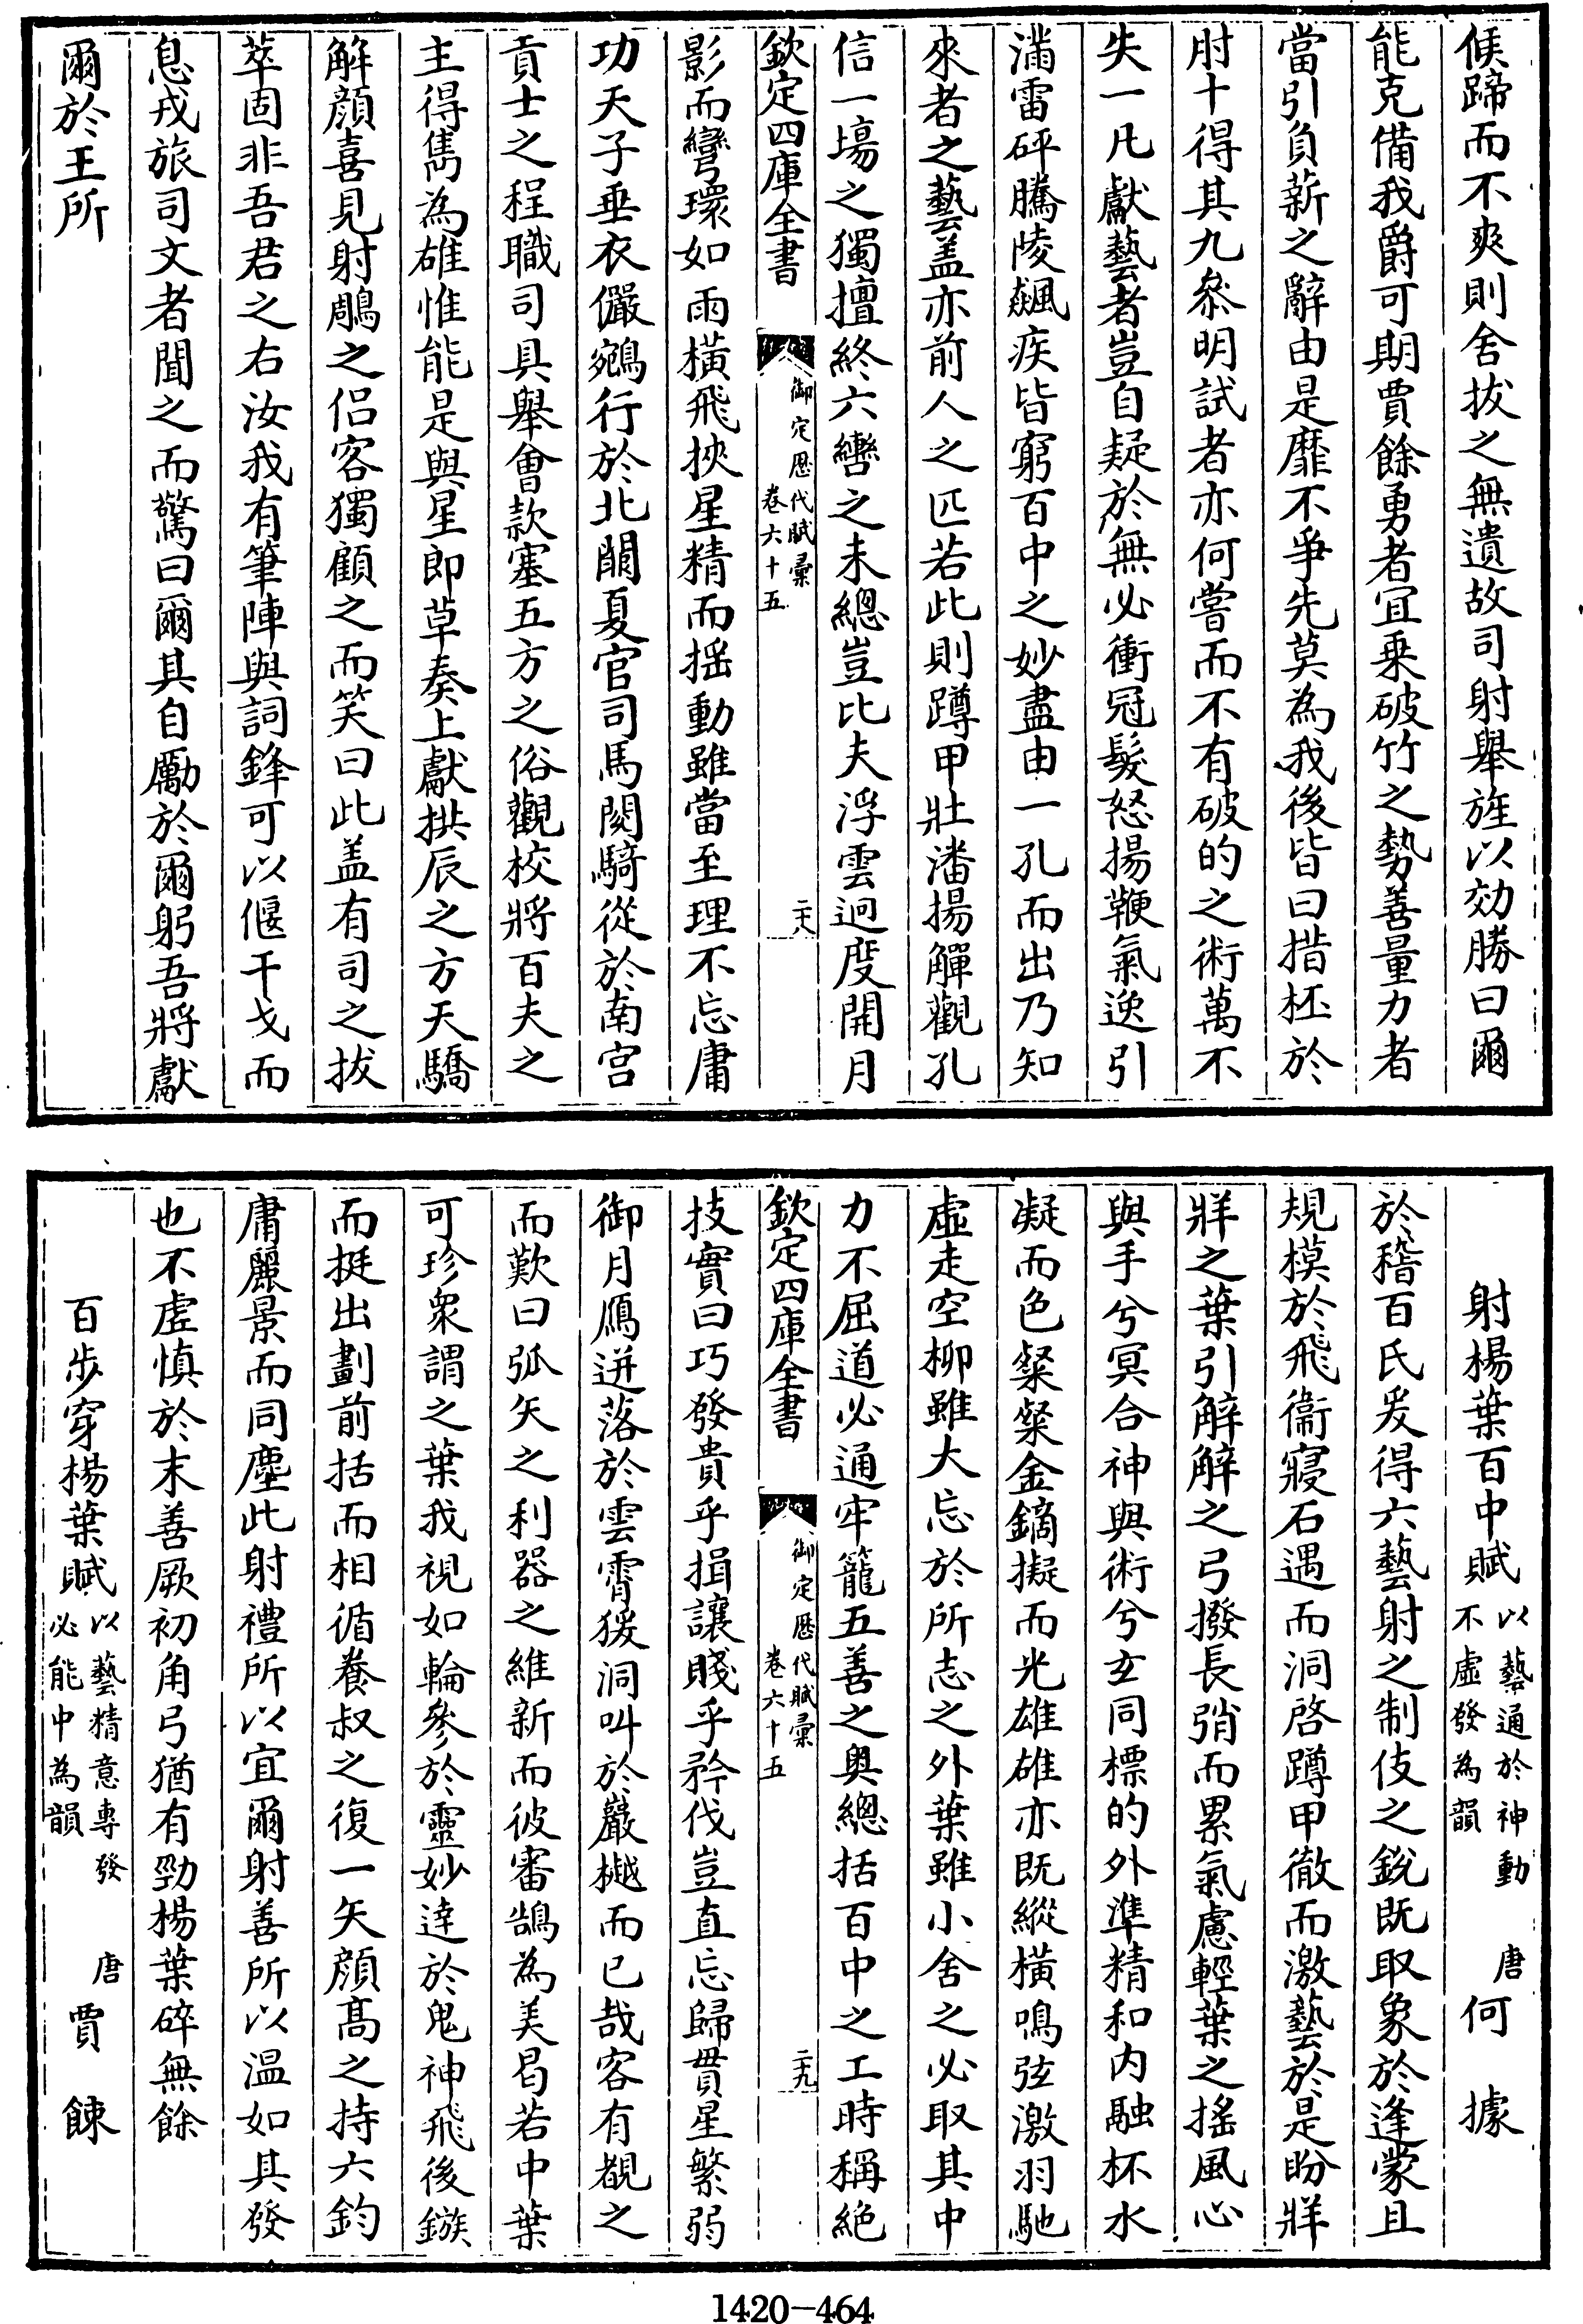 候蹄而不爽則舍拔之無遺故司射舉旌以効勝曰爾
能克備我爵可期賈餘勇者宜乗破竹之勢善量力者
當引負薪之辭由是靡不爭先莫為我後皆曰措柸於
肘十得其九叅明試者亦何嘗而不有破的之術萬不
失一凡獻藝者豈自疑於無必衝冠髮怒揚鞭氣逸引
滿雷砰騰陵飆疾皆窮百中之妙盡由一孔而出乃知
來者之藝盖亦前人之匹若此則蹲甲壯潘揚觶觀孔
信一塲之獨擅終六轡之未總豈比夫浮雲迥度開月
欽定四庫全書
御定歴代賦彙
卷六十五
二十八
影而彎環如雨橫飛挾星精而揺動雖當至理不忘庸
功天子垂衣儼鵷行於北闕夏官司馬閱騎從於南宫
貢士之程職司具舉會款塞五方之俗觀校將百夫之
主得雋為雄惟能是與星即草奏上獻拱辰之方天驕
解顔喜見射鵰之侣客獨顧之而笑曰此盖有司之拔
萃固非吾君之右汝我有筆陣與詞鋒可以偃干戈而
息戎旅司文者聞之而驚曰爾其自勵於爾躬吾將獻
爾於王所
射楊葉百中賦
以藝通於神動
不虚發為韻
唐
何據
於稽百氏爰得六藝射之制伎之銳既取象於逢蒙且
規模於飛衞寢石遇而洞啓蹲甲徹而激藝於是盼牂
牂之葉引解解之弓撥長弰而累氣慮輕葉之搖風心
與手兮冥合神與術兮玄同標的外準精和内融杯水
凝而色粲粲金鏑擬而光雄雄亦既縱橫鳴弦激羽馳
虚走空柳雖大忘於所志之外葉雖小舍之必取其中
力不屈道必通牢籠五善之奥總括百中之工時稱絶
欽定四庫全書
御定歴代賦彙
卷六十五
二十九
技實曰巧發貴乎揖讓賤乎矜伐豈直忘歸貫星繁弱
御月鴈迸落於雲霄猨洞叫於巖樾而已哉客有覩之
而歎曰弧矢之利器之維新而彼審鵠為美曷若中葉
可珍衆謂之葉我視如輪參於靈妙達於鬼神飛後鏃
而挺出劃前括而相循養叔之復一矢顔髙之持六鈞
庸麗景而同塵此射禮所以宜爾射善所以温如其發
也不虚慎於末善厥初角弓猶有勁楊葉碎無餘
百步穿楊葉賦
以藝精意專發
必能中為韻
唐
賈餗
1420-464